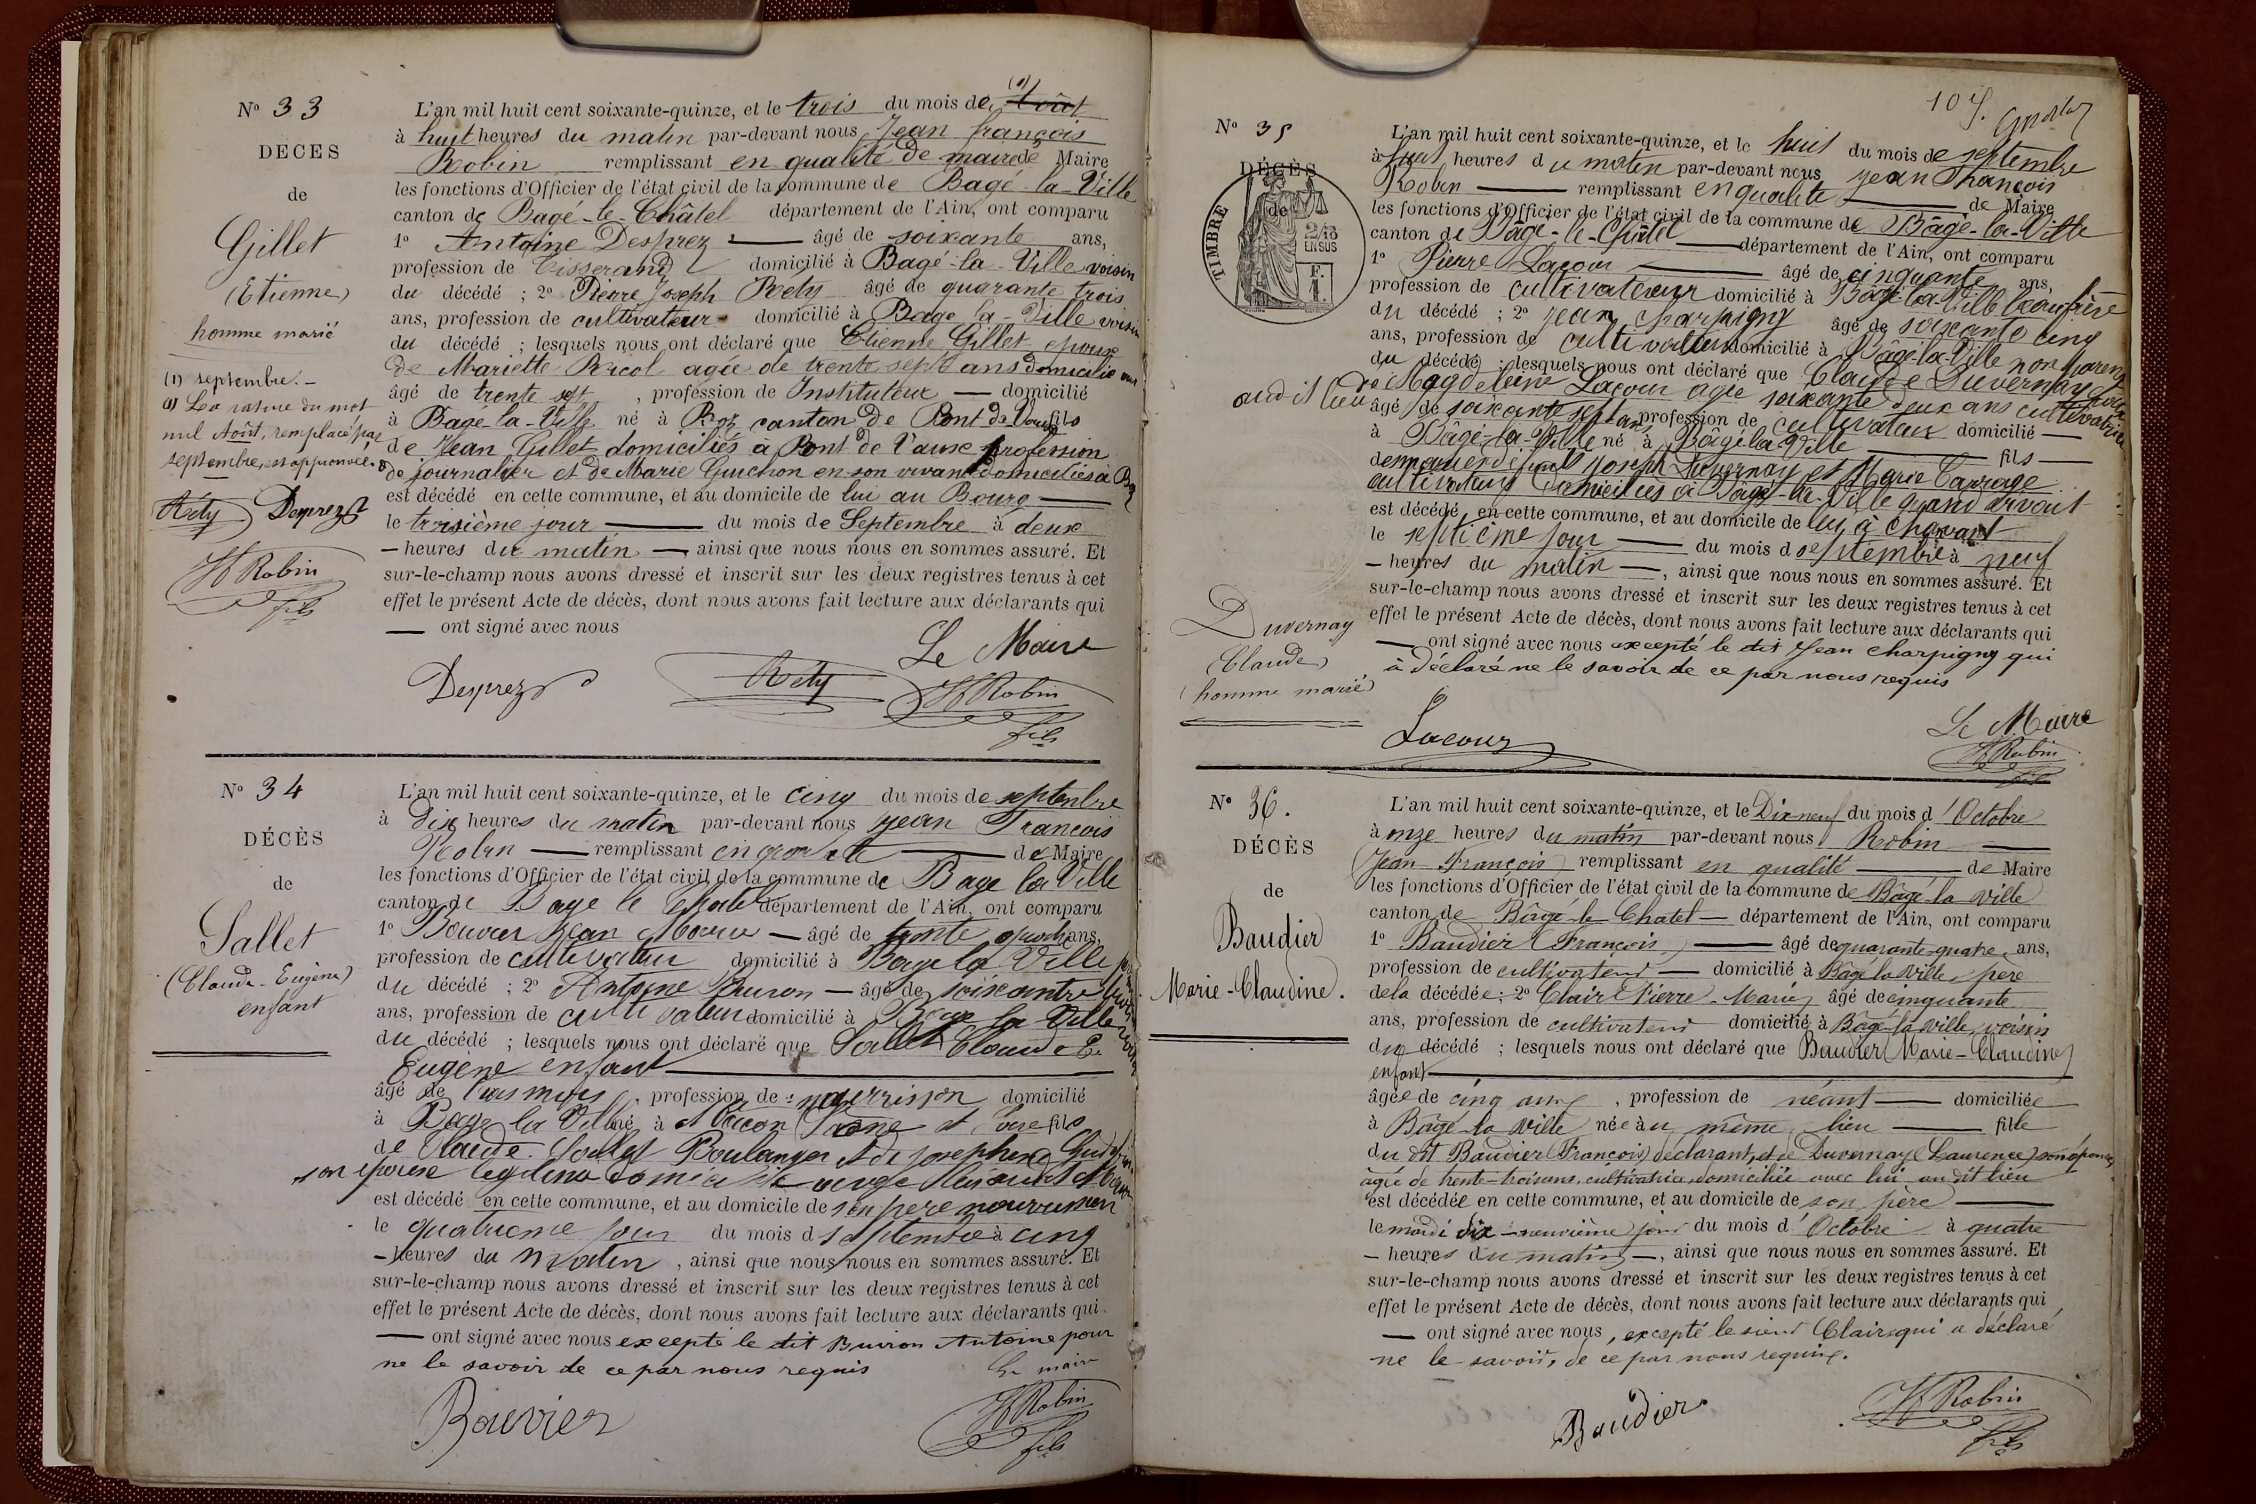 N° 33
DÉCÈS
de
Gillet
(Etienne)
homme marié
(1) septembre. -
(1) La rature du mot
nul Août, remplacé par
septembre, est approuvée.
Réty Desprez
JF Robin
fils
L'an mil huit cent soixante-quinze, et le trois du mois de (1) Août
à huit heures du matin par-devant nous Jean françois
Robin remplissant en qualité de maire de Maire
les fonctions d'Officier de l'état civil de la commune de Bagé-la-Ville
canton de Bagé-le-Châtel département de l'Ain, ont comparu
1° Antoine Desprez âgé de soixante ans,
profession de tisserand domicilié à Bagé-la-Ville voisin
du décédé ; 2° Pierre Joseph Réty âgé de quarante trois
ans, profession de cultivateur domicilié à Bagé-la-Ville voisin
du décédé ; lesquels nous ont déclaré que Etienne Gillet époux
de Mariette Ricol agée de trente sept ans domicilié
âgé de trente sept, profession de Instituteur domicilié
à Bagé-la-Ville né à Roz canton de Pont de Vaux fils
de Jean Gillet domiciliés à Pont de Vaux profession
de journalier et de Marie Guichon en son vivant domiciliés à
est décédé en cette commune, et au domicile de lui au Bourg
le troisième jour du mois de Septembre à deux
heures du matin ainsi que nous nous en sommes assuré. Et
sur-le-champ nous avons dressé et inscrit sur les deux registres tenus à cet
effet le présent Acte de décès, dont nous avons fait lecture aux déclarants qui
ont signé avec nous
Le Maire
Desprez Réty JF Robin
fils
N° 34
DÉCÈS
de
Sallet
(Claude-Eugène)
enfant
L'an mil huit cent soixante-quinze, et le cinq du mois de septembre
à Dix heures du matin par-devant nous Jean François
Robin remplissant en qualité de Maire
les fonctions d'Officier de l'état civil de la commune de Bage la Ville
canton de Bage le Chatel département de l'Ain, ont comparu
1° Bouvier Jean Marie âgé de trente ans,
profession de cultivateur domicilié à Bage la Ville
du décédé ; 2° Antoine Buiron âgé de soixante
ans, profession de cultivateur domicilié à Bage la Ville
du décédé ; lesquels nous ont déclaré que Sallet Claude E.
Eugène enfant
âgé de trois mois, profession de : nourrisson domicilié
à Bage la Ville né à Macon Saone et Loire fils
de Claude Sallet Boulanger et de Josephine
son épouse legitime
est décédé en cette commune, et au domicile de son père nourricier
le quatrieme jour du mois d septembre à cinq
heures du matin, ainsi que nous nous en sommes assuré. Et
sur-le-champ nous avons dressé et inscrit sur les deux registres tenus à cet
effet le présent Acte de décès, dont nous avons fait lecture aux déclarants qui
ont signé avec nous excepté le dit Buiron Antoine pour
ne le savoir de ce par nous requis
Le maire
Bouvier JF Robin
fils
107.
N° 35
DÉCÈS
de
TIMBRE
2/10
EN SUS
F.
1.
Duvernay
(Claude)
(homme marié)
L'an mil huit cent soixante-quinze, et le huit du mois de septembre
à huit heures du matin par-devant nous Jean François
Robin remplissant en qualité de Maire
les fonctions d'Officier de l'état civil de la commune de Bâgé-la-Ville
canton de Bâgé-le-Châtel département de l'Ain, ont comparu
1° Pierre Lacour âgé de cinquante ans,
profession de cultivateur domicilié à Bâgé-la-Ville beaufrère
du décédé ; 2° Jean Charpigny âgé de soixante cinq
ans, profession de cultivateur domicilié à Bâgé-la-Ville non parent
du décédé ; lesquels nous ont déclaré que Claude Duvernay époux
de Magdeleine Lacour agée soixante deux ans cultivatrice
audit lieu âgé de soixante sept ans profession de cultivateur domicilié
à Bâgé-la-Ville né à Bâgé la Ville fils
de Joseph Duvernay et Marie Carrage
cultivateurs domiciliés à Bâgé-la-Ville quand vivait
est décédé en cette commune, et au domicile de lui, à
le septième jour du mois d septembre à neuf
heures du matin, ainsi que nous nous en sommes assuré. Et
sur-le-champ nous avons dressé et inscrit sur les deux registres tenus à cet
effet le présent Acte de décès, dont nous avons fait lecture aux déclarants qui
ont signé avec nous excepté le dit Jean Charpigny qui
à déclaré ne le savoir de ce par nous requis
Le Maire
Lacour JF Robin
fils
N° 36.
DÉCÈS
de
Baudier
Marie-Claudine.
L'an mil huit cent soixante-quinze, et le Dix-neuf du mois d'Octobre
à onze heures du matin par-devant nous Robin
(Jean-François) remplissant en qualité de Maire
les fonctions d'Officier de l'état civil de la commune de Bâgé-la ville
canton de Bâgé-le-Chatel département de l'Ain, ont comparu
1° Baudier (François) âgé de quarante-quatre ans,
profession de cultivateur domicilié à Bâgé la ville, père
de la décédée ; 2° Clair (Pierre-Marie) âgé de cinquante
ans, profession de cultivateur domicilié à Bâgé-la ville, voisin
du décédé ; lesquels nous ont déclaré que Baudier (Marie-Claudine)
enfant
âgée de cinq ans, profession de néant domiciliée
à Bâgé-la ville née au même lieu fille
du dit Baudier (François) déclarant, et de Duvernay (Laurence) son épouse,
âgée de trente-trois ans, cultivatrice, domiciliée avec lui au dit lieu
est décédée en cette commune, et au domicile de son père
le mardi dix-neuvième jour du mois d'Octobre à quatre
heures du matin, ainsi que nous nous en sommes assuré. Et
sur-le-champ nous avons dressé et inscrit sur les deux registres tenus à cet
effet le présent Acte de décès, dont nous avons fait lecture aux déclarants qui
ont signé avec nous, excepté le sieur Clair qui a déclaré
ne le savoir, de ce par nous requis.
Baudier JF Robin
fils